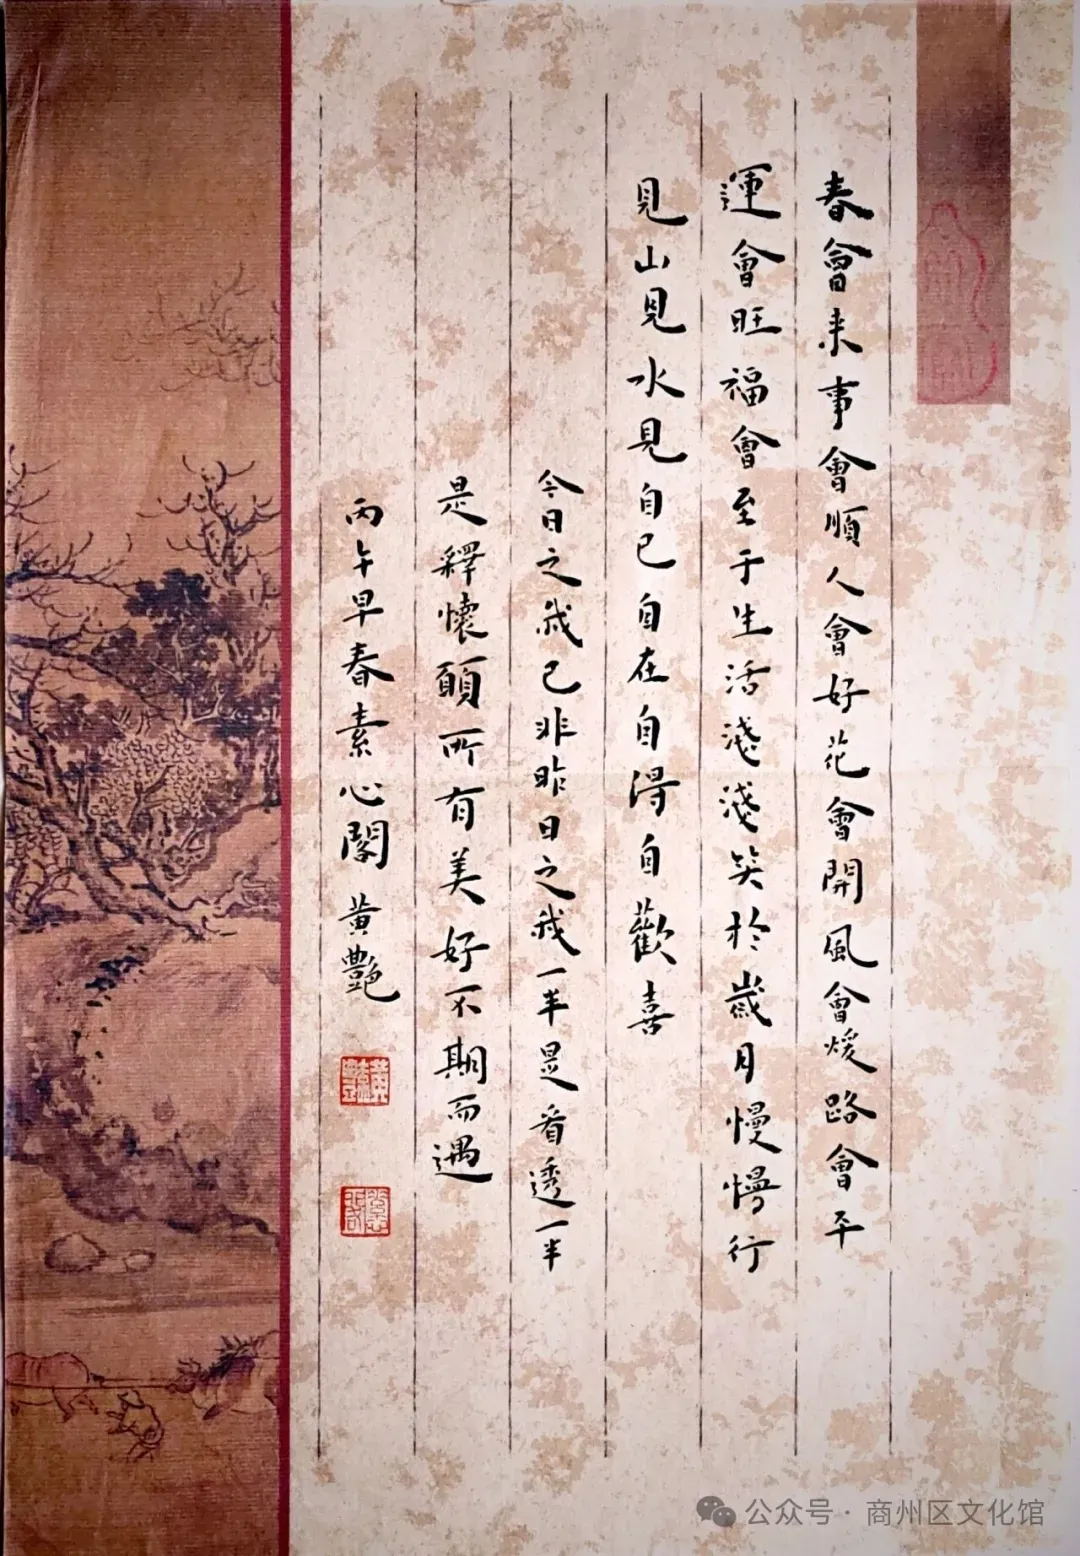 春會來事會順人會好花會開風會煖路會平
運會旺福會至于生活淺淺笑於歲月慢慢行
見山見水見自己自在自得自歡喜
今日之我已非昨日之我一半是看透一半
是釋懷願所有美好不期而遇
丙午早春素心閣黃艷
公众号·商州区文化馆